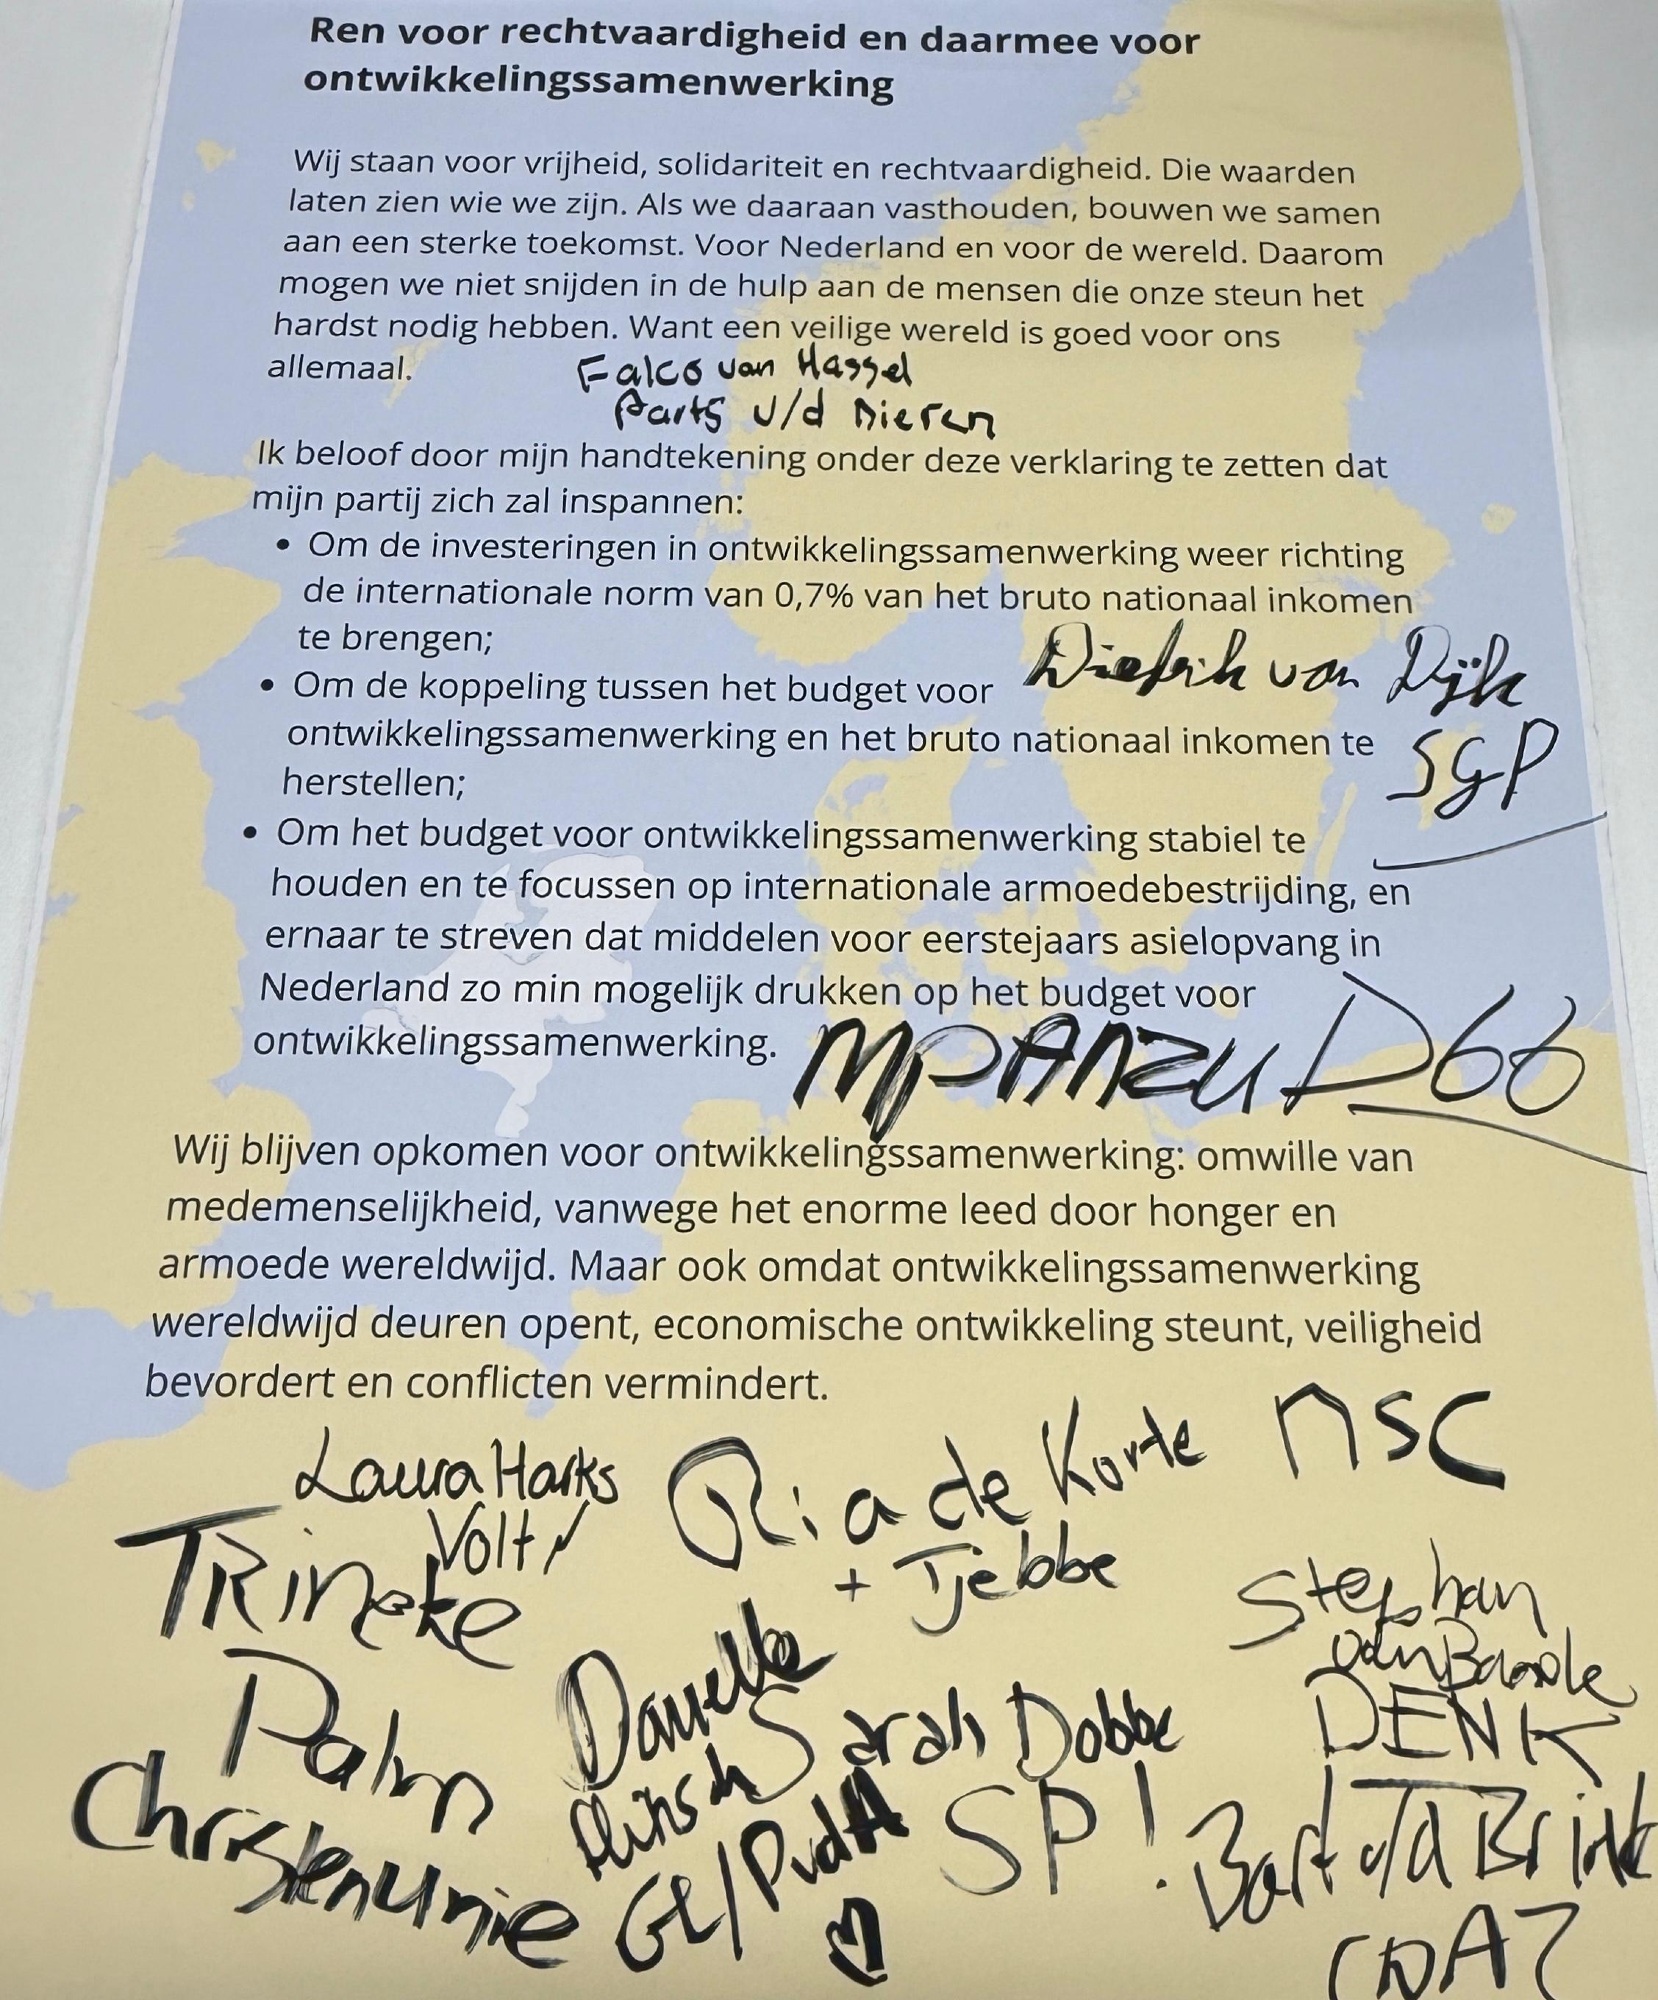 Ren voor rechtvaardigheid en daarmee voor
ontwikkelingssamenwerking
Wij staan voor vrijheid, solidariteit en rechtvaardigheid. Die waarden
laten zien wie we zijn. Als we daaraan vasthouden, bouwen we samen
aan een sterke toekomst. Voor Nederland en voor de wereld. Daarom
mogen we niet snijden in de hulp aan de mensen die onze steun het
hardst nodig hebben. Want een veilige wereld is goed voor ons
allemaal.
Falco van Hassel
v/d Dieren
Ik beloof door mijn handtekening onder deze verklaring te zetten dat
mijn partij zich zal inspannen:
• Om de investeringen in ontwikkelingssamenwerking weer richting
de internationale norm van 0,7% van het bruto nationaal inkomen
te brengen;
Diederik van Dijk
• Om de koppeling tussen het budget voor
ontwikkelingssamenwerking en het bruto nationaal inkomen te
herstellen;
SGP
• Om het budget voor ontwikkelingssamenwerking stabiel te
houden en te focussen op internationale armoedebestrijding, en
ernaar te streven dat middelen voor eerstejaars asielopvang in
Nederland zo min mogelijk drukken op het budget voor
ontwikkelingssamenwerking.
MPANZU D66
Wij blijven opkomen voor ontwikkelingssamenwerking: omwille van
medemenselijkheid, vanwege het enorme leed door honger en
armoede wereldwijd. Maar ook omdat ontwikkelingssamenwerking
wereldwijd deuren opent, economische ontwikkeling steunt, veiligheid
bevordert en conflicten vermindert.
Laura Harks
Volt
Ria de Korte NSC
+ Tjebbe
Trineke
Palm
Christenunie
Danielle
GL/PvdA
Sarah Dobbe
SP!
Stephan
van Baarle
DENK
Bart v/d Brink
CDA